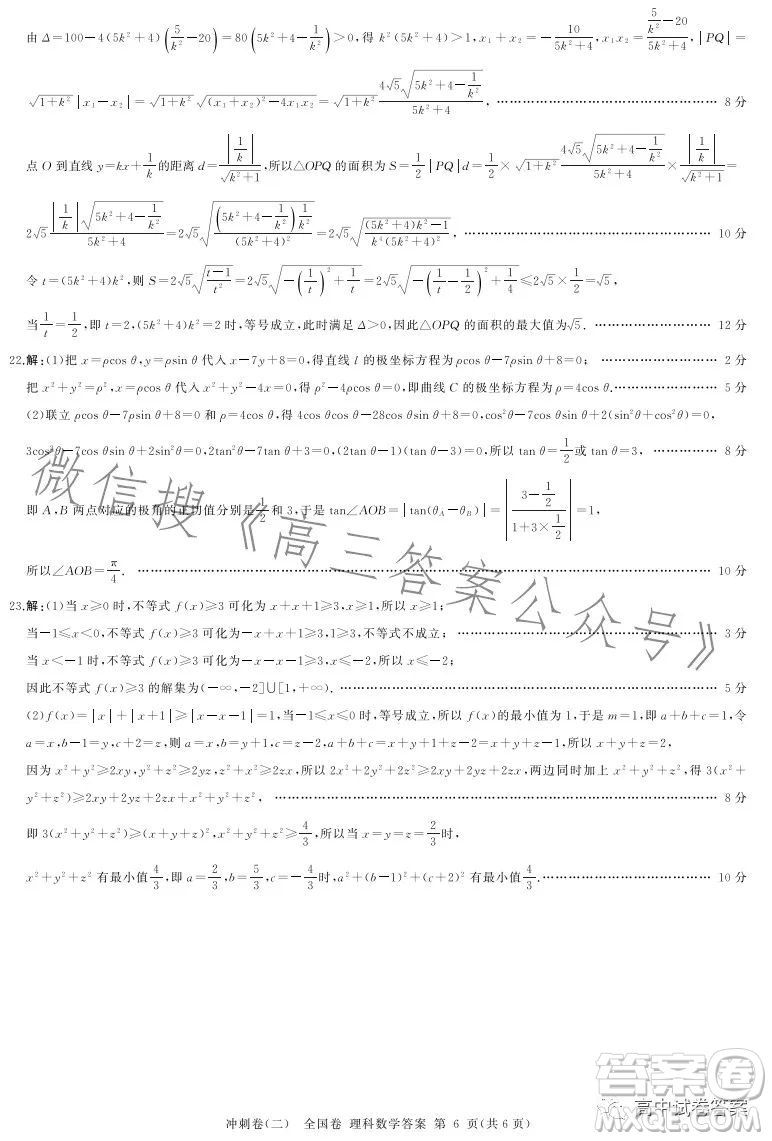 由 Δ=100-4(5k²+4)(5/k²-20)=80(5k²+4-1/k²)>0,得 k²(5k²+4)>1,x₁+x₂=-10/(5k²+4),x₁x₂=(5/k²-20)/(5k²+4),|PQ|=
√(1+k²)|x₁-x₂|=√(1+k²)√((x₁+x₂)²-4x₁x₂)=√(1+k²)·4√5√(5k²+4-1/k²)/(5k²+4), …… 8 分
点 O 到直线 y=kx+1/k 的距离 d=|1/k|/√(k²+1),所以△OPQ 的面积为 S=1/2|PQ|d=1/2×√(1+k²) 4√5√(5k²+4-1/k²)/(5k²+4)×|1/k|/√(k²+1)=
2√5 |1/k|√(5k²+4-1/k²)/(5k²+4)=2√5√((5k²+4-1/k²)1/k²/(5k²+4)²)=2√5√(((5k²+4)k²-1)/(k⁴(5k²+4)²)). …… 10 分
令 t=(5k²+4)k²,则 S=2√5√((t-1)/t²)=2√5√(-(1/t)²+1/t)=2√5√(-(1/t-1/2)²+1/4)≤2√5×1/2=√5,
当1/t=1/2,即 t=2,(5k²+4)k²=2 时,等号成立,此时满足 Δ>0,因此△OPQ 的面积的最大值为√5. …… 12 分
22.解:(1)把 x=ρcos θ,y=ρsin θ 代入 x-7y+8=0,得直线 l 的极坐标方程为 ρcos θ-7ρsin θ+8=0; …… 2 分
把 x²+y²=ρ²,x=ρcos θ 代入 x²+y²-4x=0,得 ρ²-4ρcos θ=0,即曲线 C 的极坐标方程为 ρ=4cos θ. …… 5 分
(2)联立 ρcos θ-7ρsin θ+8=0 和 ρ=4cos θ,得 4cos θcos θ-28cos θsin θ+8=0,cos²θ-7cos θsin θ+2(sin²θ+cos²θ)=0,
3cos²θ-7cos θsin θ+2sin²θ=0,2tan²θ-7tan θ+3=0,(2tan θ-1)(tan θ-3)=0,所以 tan θ=1/2或 tan θ=3, …… 8 分
即 A,B 两点对应的极角的正切值分别是1/2和 3,于是 tan∠AOB=|tan(θ_A-θ_B)|=|(3-1/2)/(1+3×1/2)|=1,
所以∠AOB=π/4. …… 10 分
23.解:(1)当 x≥0 时,不等式 f(x)≥3 可化为 x+x+1≥3,x≥1,所以 x≥1;
当-1≤x<0,不等式 f(x)≥3 可化为-x+x+1≥3,1≥3,不等式不成立; …… 3 分
当 x<-1 时,不等式 f(x)≥3 可化为-x-x-1≥3,x≤-2,所以 x≤-2;
因此不等式 f(x)≥3 的解集为(-∞,-2]∪[1,+∞). …… 5 分
(2)f(x)=|x|+|x+1|≥|x-x-1|=1,当-1≤x≤0 时,等号成立,所以 f(x)的最小值为 1,于是 m=1,即 a+b+c=1,令
a=x,b-1=y,c+2=z,则 a=x,b=y+1,c=z-2,a+b+c=x+y+1+z-2=x+y+z-1,所以 x+y+z=2,
因为 x²+y²≥2xy,y²+z²≥2yz,z²+x²≥2zx,所以 2x²+2y²+2z²≥2xy+2yz+2zx,两边同时加上 x²+y²+z²,得 3(x²+
y²+z²)≥2xy+2yz+2zx+x²+y²+z², …… 8 分
即 3(x²+y²+z²)≥(x+y+z)²,x²+y²+z²≥4/3,所以当 x=y=z=2/3时,
x²+y²+z² 有最小值4/3,即 a=2/3,b=5/3,c=-4/3时,a²+(b-1)²+(c+2)² 有最小值4/3. …… 10 分
微信搜《高三答案公众号》
答案圈
高中试卷答案
MXQE.COM
冲刺卷(二) 全国卷 理科数学答案 第 6 页(共 6 页)